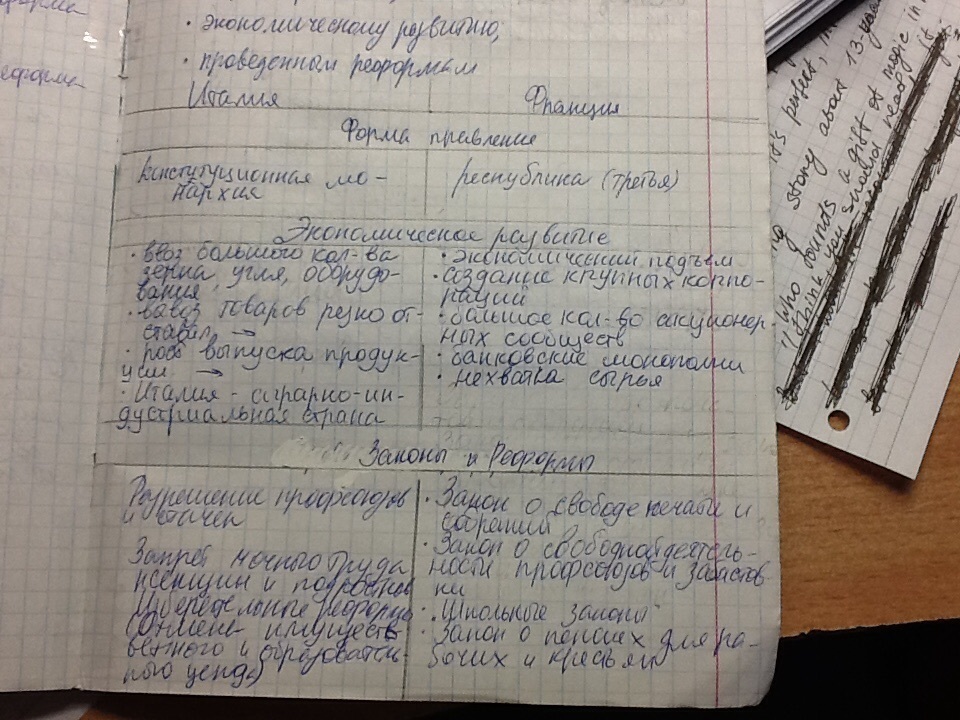 еформа
еформа
• экономическому развитию;
• проведенным реформам
Италия Франция
Форма правления
конституционная мо-
нархия
республика (третья)
Экономическое развитие
• ввоз большого кол-ва
зерна, угля, оборудо-
вания
• вывоз товаров резко от-
ставал →
• рост выпуска продук-
ции →
• Италия - аграрно-ин-
дустриальная страна
• экономический подъем
• создание крупных корпо-
раций
• большое кол-во акционер-
ных сообществ
• банковские монополии
• нехватка сырья
Законы и Реформы
Разрешение профсоюзов
и стачек
Запрет ночного труда
женщин и подростков
Избирательные реформы
(Отмена имуществ
венного и образователь-
ного ценза)
• Закон о свободе печати и
собраний
• Закон о свободной деятель-
ности профсоюзов и забастов
ки
• Школьные законы
• Закон о пенсиях для ра-
бочих и крестьян
it's perfect,
story about 13-year
"Who founds a gift of magic in
"I think you should read it